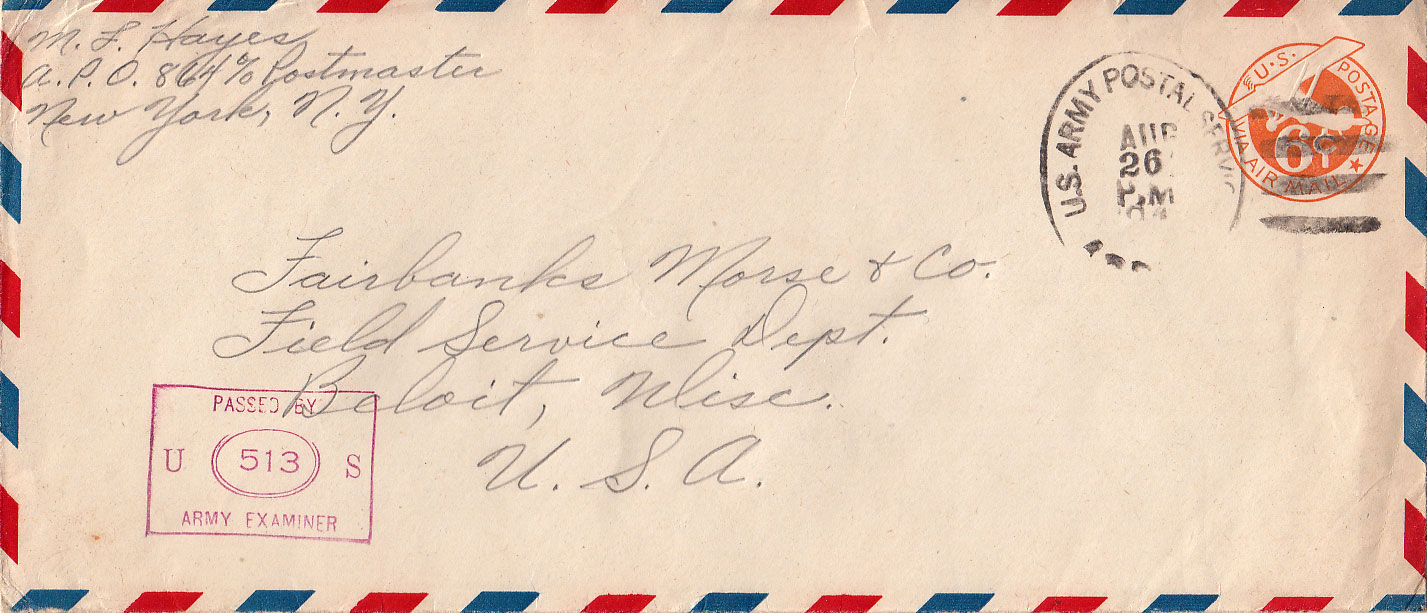 M. F. Hayes
A. P. O. 864 % Postmaster
New York, N. Y.
U.S. ARMY POSTAL SERVIC
AUG
26
P.M
U.S. POSTAGE
6¢
VIA AIR MAIL
Fairbanks Morse & Co.
Field Service Dept.
Beloit, Wisc.
U. S. A.
PASSED BY
U 513 S
ARMY EXAMINER